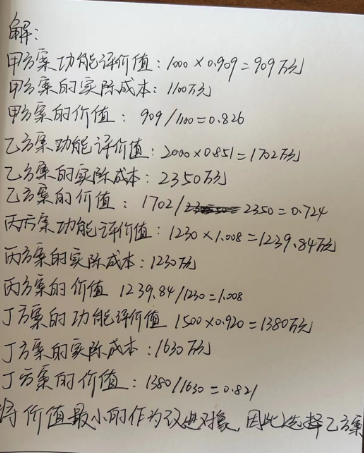 解:
甲方案功能评价值: 1000×0.909=909万元
甲方案的实际成本: 1100万元
甲方案的价值: 909/1100=0.826
乙方案功能评价值: 2000×0.851=1702万元
乙方案的实际成本: 2350万元
乙方案的价值: 1702/2350=0.724
丙方案功能评价值: 1230×1.008=1239.84万元
丙方案的实际成本: 1230万元
丙方案的价值 1239.84/1230=1.008
丁方案的功能评价值 1500×0.920=1380万元
丁方案的实际成本: 1630万元
丁方案的价值: 1380/1630=0.821
将价值最小的作为改进对象,因此选择乙方案